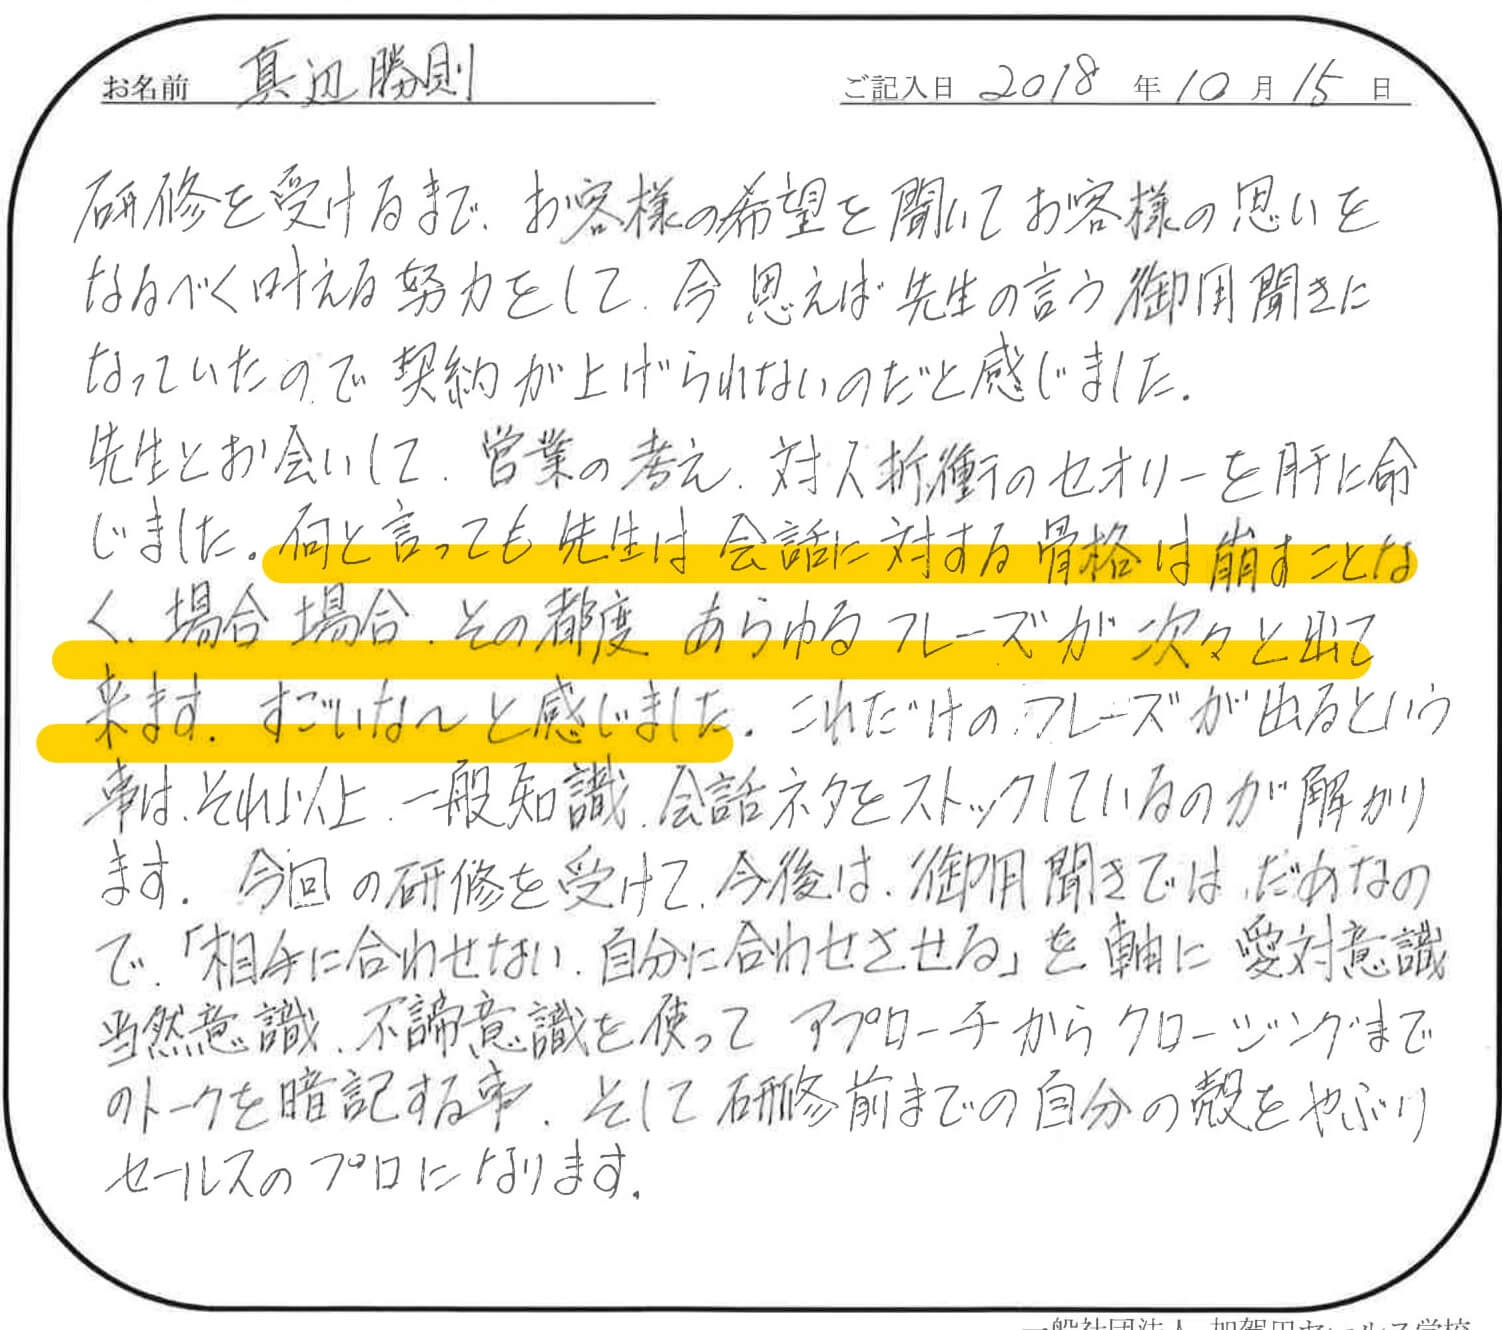 お名前 真辺勝則 ご記入日 2018 年 10 月 15 日
研修を受けるまで、お客様の希望を聞いてお客様の思いを
なるべく叶える努力をして、今思えば先生の言う御用聞きに
なっていたので契約が上げられないのだと感じました。
先生とお会いして、営業の考え、対人折衝のセオリーを肝に命
じました。何と言っても先生は会話に対する骨格は崩すことな
く、場合場合、その都度あらゆるフレーズが次々と出て
来ます。すごいな〜と感じました。これだけのフレーズが出るという
事は、それ以上、一般知識、会話ネタをストックしているのが解かり
ます。今回の研修を受けて、今後は、御用聞きでは、だめなの
で、「相手に合わせない、自分に合わせさせる」を軸に愛対意識
当然意識、不諦意識を使ってアプローチからクロージングまで
のトークを暗記する事、そして研修前までの自分の殻をやぶり
セールスのプロになります。